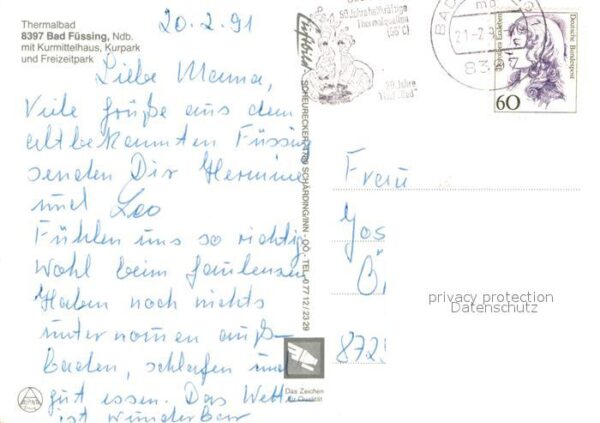 Thermalbad
8397 Bad Füssing, Ndb.
mit Kurmittelhaus, Kurpark
und Freizeitpark
20.2.91
Liebe Mamma,
Viele Grüße aus dem
altbekannten Füssing
senden Dir Hermine
und Leo
Fühlen uns so richtig
wohl beim faulensen
Haben noch nichts
unternomen auß-
baden, schlafen und
gut essen. Das Wett
ist wunderbar
Luftbild
SCHEURECKER
SCHÄRDING/INN - OÖ. - TEL. 0 77 12 / 23 29
50 Jahre heilkräftige
Thermalquellen
(56°C)
20 Jahre
BAD
21.-2.9
83
Deutsche Bundespost
60
Frau
Jos
Ö
872
privacy protection
Datenschutz
Das Zeichen
für Qualität